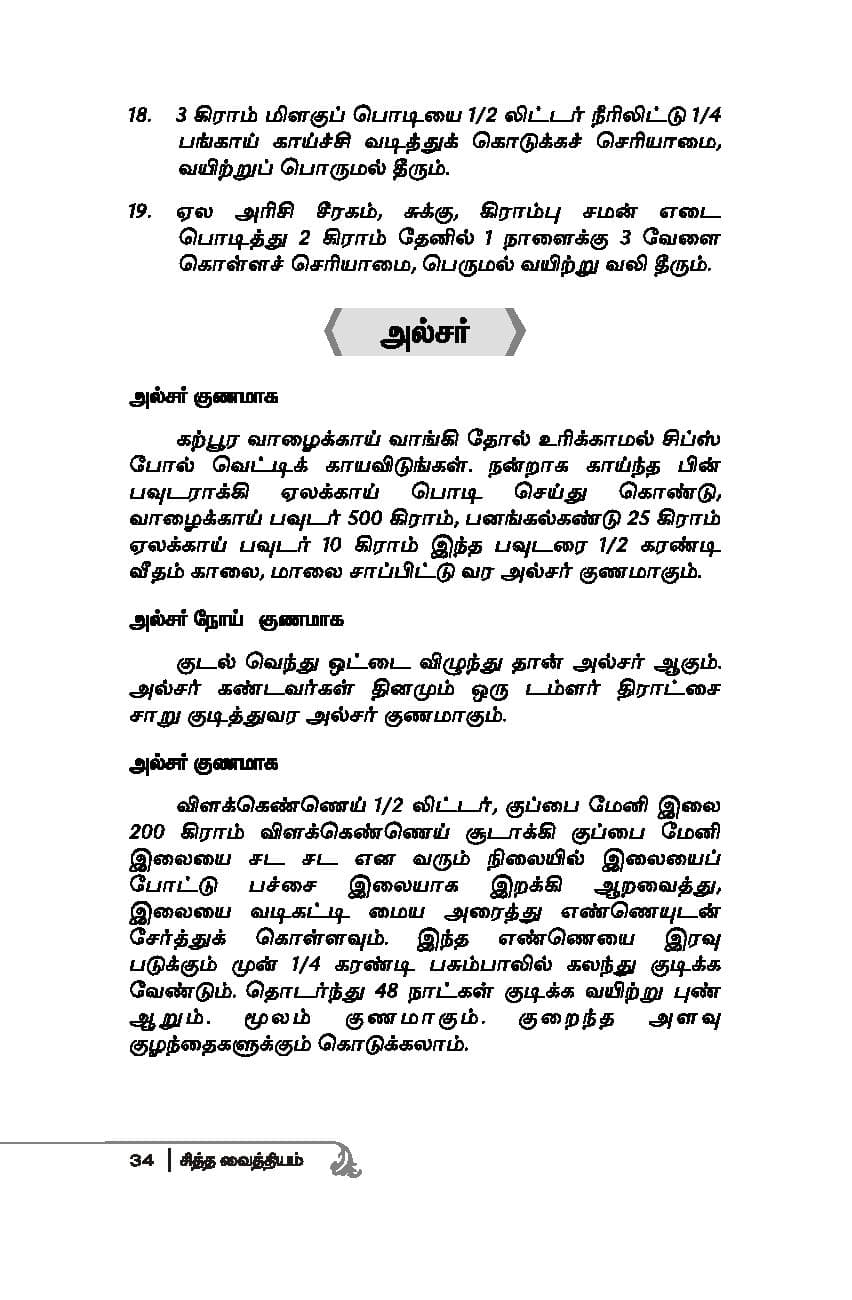 18. 3 கிராம் மிளகுப் பொடியை 1/2 லிட்டர் நீரிலிட்டு 1/4
பங்காய் காய்ச்சி வடித்துக் கொடுக்கச் செரியாமை,
வயிற்றுப் பொருமல் தீரும்.
19. ஏல அரிசி சீரகம், சுக்கு, கிராம்பு சமன் எடை
பொடித்து 2 கிராம் தேனில் 1 நாளைக்கு 3 வேளை
கொள்ளச் செரியாமை, பெருமல் வயிற்று வலி தீரும்.
அல்சர்
அல்சர் குணமாக
கற்பூர வாழைக்காய் வாங்கி தோல் உரிக்காமல் சிப்ஸ்
போல் வெட்டிக் காயவிடுங்கள். நன்றாக காய்ந்த பின்
பவுடராக்கி ஏலக்காய் பொடி செய்து கொண்டு,
வாழைக்காய் பவுடர் 500 கிராம், பனங்கல்கண்டு 25 கிராம்
ஏலக்காய் பவுடர் 10 கிராம் இந்த பவுடரை 1/2 கரண்டி
வீதம் காலை, மாலை சாப்பிட்டு வர அல்சர் குணமாகும்.
அல்சர் நோய் குணமாக
குடல் வெந்து ஒட்டை விழுந்து தான் அல்சர் ஆகும்.
அல்சர் கண்டவர்கள் தினமும் ஒரு டம்ளர் திராட்சை
சாறு குடித்துவர அல்சர் குணமாகும்.
அல்சர் குணமாக
விளக்கெண்ணெய் 1/2 லிட்டர், குப்பை மேனி இலை
200 கிராம் விளக்கெண்ணெய் சூடாக்கி குப்பை மேனி
இலையை சட சட என வரும் நிலையில் இலையைப்
போட்டு பச்சை இலையாக இறக்கி ஆறவைத்து,
இலையை வடிகட்டி மைய அரைத்து எண்ணெயுடன்
சேர்த்துக் கொள்ளவும். இந்த எண்ணெயை இரவு
படுக்கும் முன் 1/4 கரண்டி பசும்பாலில் கலந்து குடிக்க
வேண்டும். தொடர்ந்து 48 நாட்கள் குடிக்க வயிற்று புண்
ஆறும். மூலம் குணமாகும். குறைந்த அளவு
குழந்தைகளுக்கும் கொடுக்கலாம்.
34 | சித்த வைத்தியம்